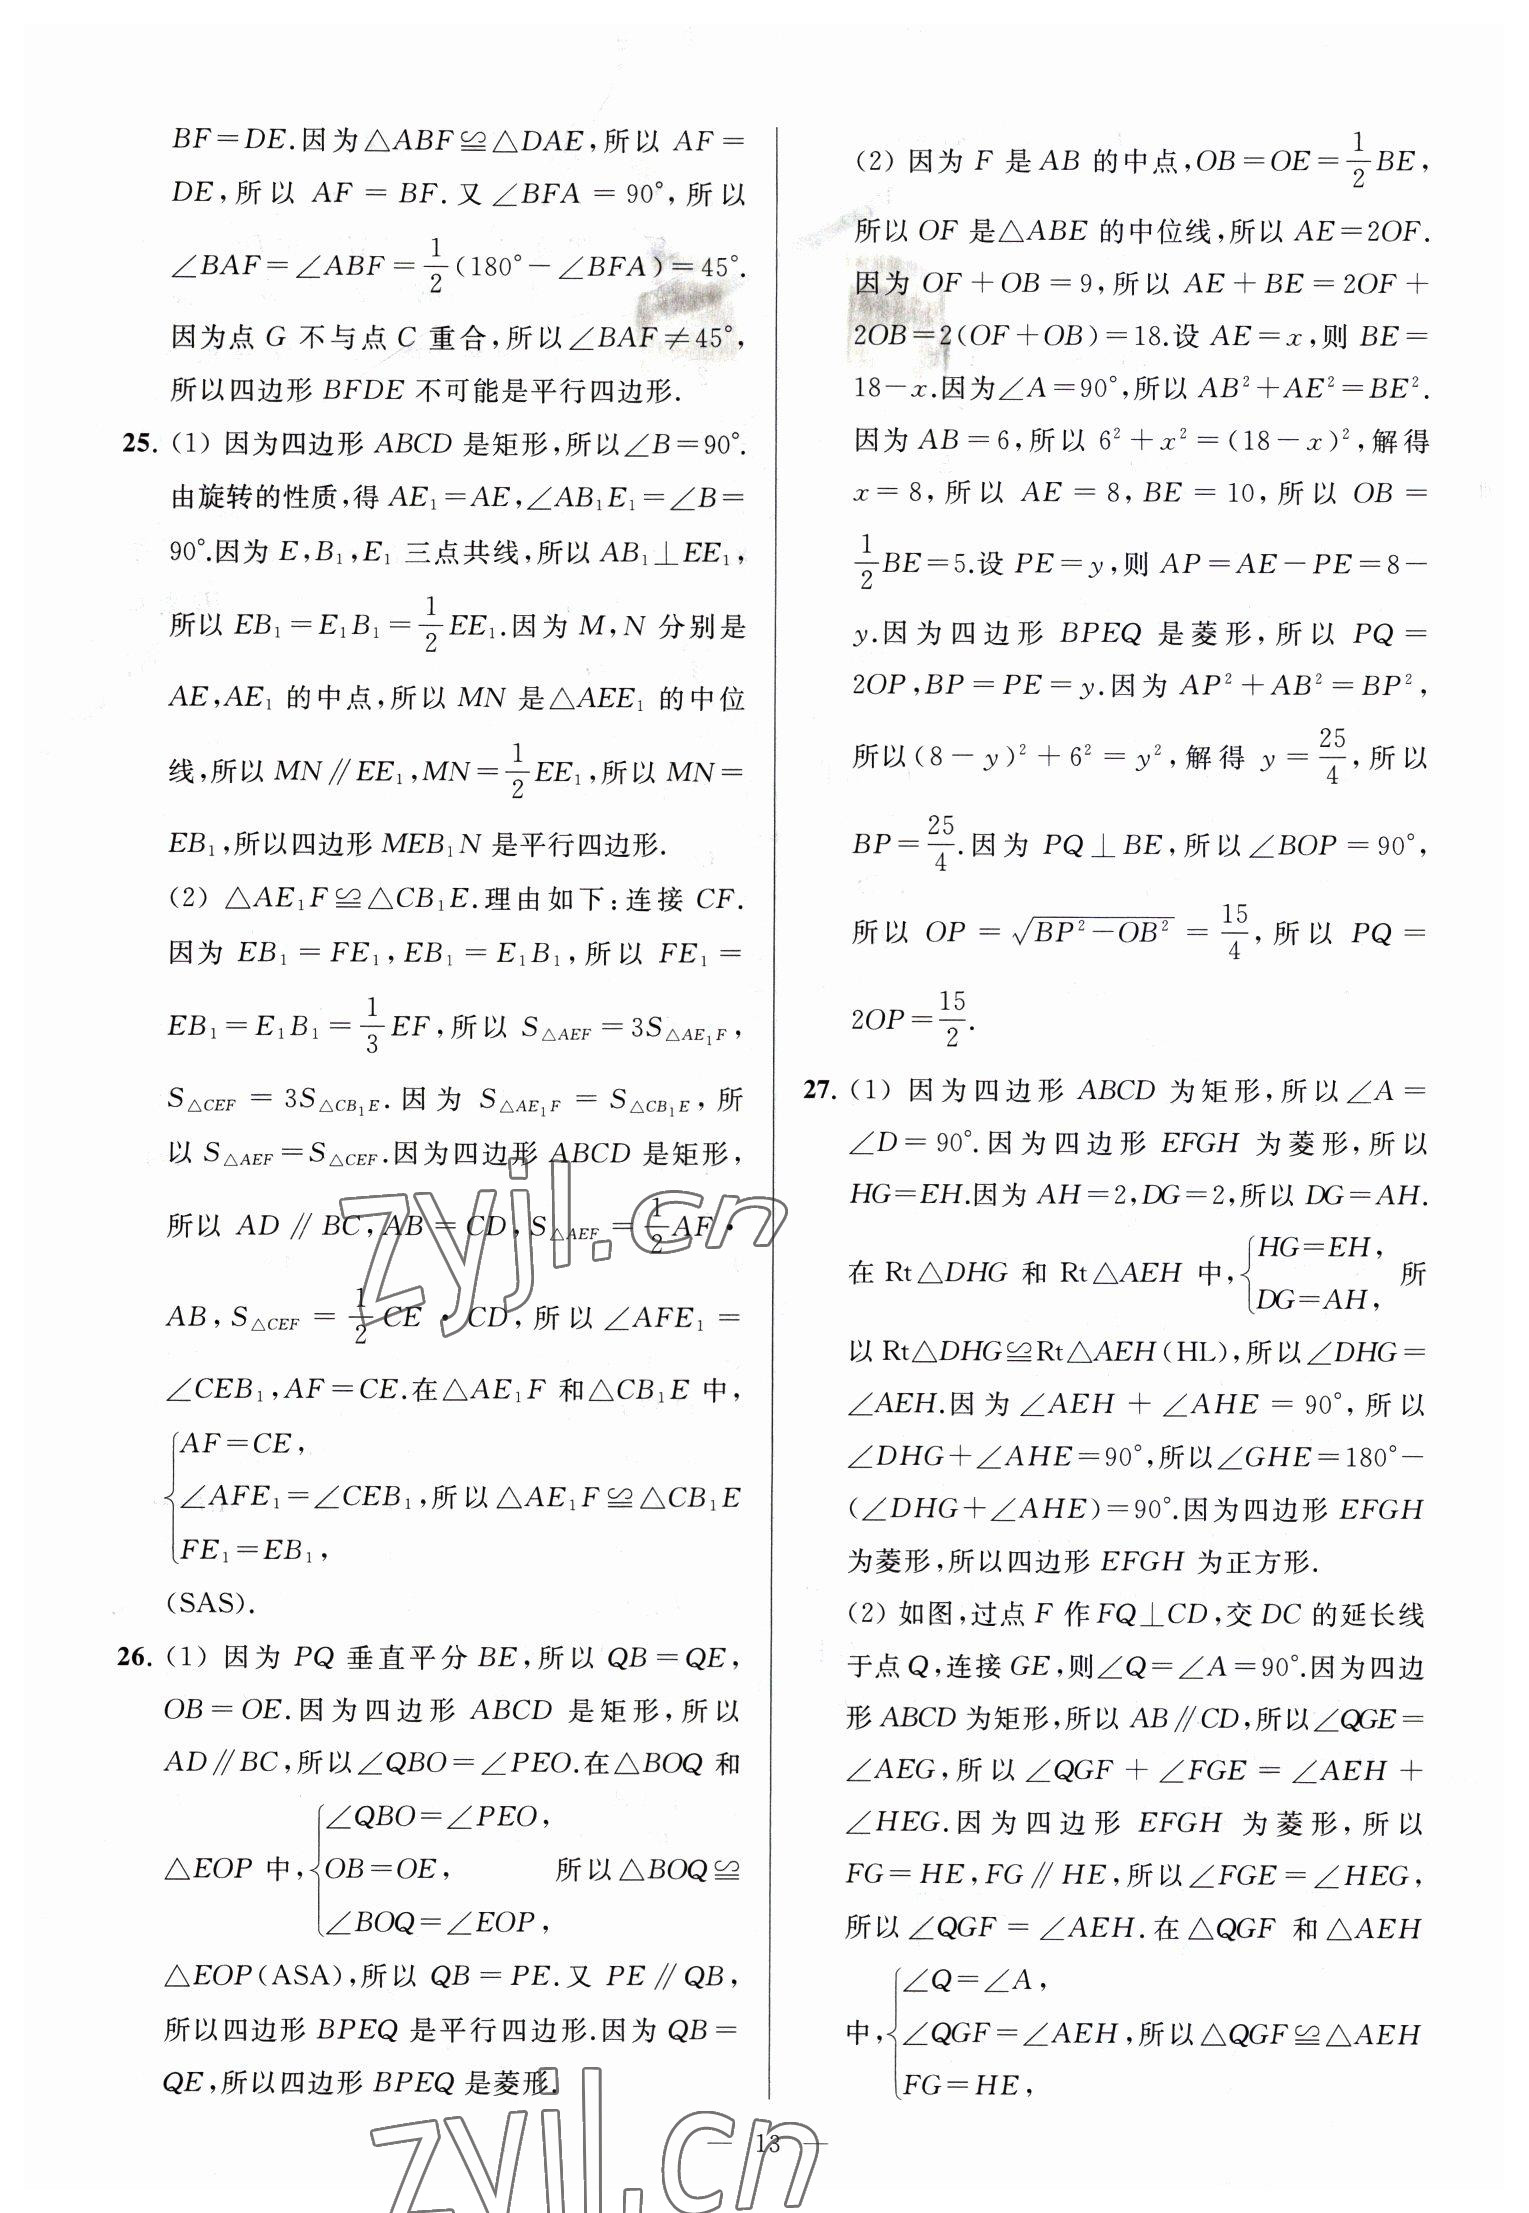 BF=DE.因为△ABF≌△DAE,所以 AF=
DE,所以 AF=BF.又∠BFA=90°,所以
∠BAF=∠ABF=1/2(180°-∠BFA)=45°.
因为点 G 不与点 C 重合,所以∠BAF≠45°,
所以四边形 BFDE 不可能是平行四边形.
25. (1) 因为四边形 ABCD 是矩形,所以∠B=90°.
由旋转的性质,得 AE₁=AE,∠AB₁E₁=∠B=
90°.因为 E,B₁,E₁ 三点共线,所以 AB₁⊥EE₁,
所以 EB₁=E₁B₁=1/2EE₁.因为 M,N 分别是
AE,AE₁ 的中点,所以 MN 是△AEE₁ 的中位
线,所以 MN∥EE₁,MN=1/2EE₁,所以 MN=
EB₁,所以四边形 MEB₁N 是平行四边形.
(2) △AE₁F≌△CB₁E.理由如下:连接 CF.
因为 EB₁=FE₁,EB₁=E₁B₁,所以 FE₁=
EB₁=E₁B₁=1/3EF,所以 S△AEF=3S△AE₁F,
S△CEF=3S△CB₁E.因为 S△AE₁F=S△CB₁E,所
以 S△AEF=S△CEF.因为四边形 ABCD 是矩形,
所以 AD∥BC,AB=CD,S△AEF=1/2AF·
AB,S△CEF=1/2CE·CD,所以∠AFE₁=
∠CEB₁,AF=CE.在△AE₁F 和△CB₁E 中,
{AF=CE,
∠AFE₁=∠CEB₁,所以△AE₁F≌△CB₁E
FE₁=EB₁,
(SAS).
26. (1) 因为 PQ 垂直平分 BE,所以 QB=QE,
OB=OE.因为四边形 ABCD 是矩形,所以
AD∥BC,所以∠QBO=∠PEO.在△BOQ 和
{∠QBO=∠PEO,
△EOP 中, OB=OE, 所以△BOQ≌
∠BOQ=∠EOP,
△EOP(ASA),所以 QB=PE.又 PE∥QB,
所以四边形 BPEQ 是平行四边形.因为 QB=
QE,所以四边形 BPEQ 是菱形.
(2) 因为 F 是 AB 的中点,OB=OE=1/2BE,
所以 OF 是△ABE 的中位线,所以 AE=2OF.
因为 OF+OB=9,所以 AE+BE=2OF+
2OB=2(OF+OB)=18.设 AE=x,则 BE=
18-x.因为∠A=90°,所以 AB²+AE²=BE².
因为 AB=6,所以 6²+x²=(18-x)²,解得
x=8,所以 AE=8,BE=10,所以 OB=
1/2BE=5.设 PE=y,则 AP=AE-PE=8-
y.因为四边形 BPEQ 是菱形,所以 PQ=
2OP,BP=PE=y.因为 AP²+AB²=BP²,
所以(8-y)²+6²=y²,解得 y=25/4,所以
BP=25/4.因为 PQ⊥BE,所以∠BOP=90°,
所以 OP=√(BP²-OB²)=15/4,所以 PQ=
2OP=15/2.
27. (1) 因为四边形 ABCD 为矩形,所以∠A=
∠D=90°.因为四边形 EFGH 为菱形,所以
HG=EH.因为 AH=2,DG=2,所以 DG=AH.
在 Rt△DHG 和 Rt△AEH 中,{HG=EH, 所
DG=AH,
以 Rt△DHG≌Rt△AEH(HL),所以∠DHG=
∠AEH.因为∠AEH+∠AHE=90°,所以
∠DHG+∠AHE=90°,所以∠GHE=180°-
(∠DHG+∠AHE)=90°.因为四边形 EFGH
为菱形,所以四边形 EFGH 为正方形.
(2) 如图,过点 F 作 FQ⊥CD,交 DC 的延长线
于点 Q,连接 GE,则∠Q=∠A=90°.因为四边
形 ABCD 为矩形,所以 AB∥CD,所以∠QGE=
∠AEG,所以∠QGF+∠FGE=∠AEH+
∠HEG.因为四边形 EFGH 为菱形,所以
FG=HE,FG∥HE,所以∠FGE=∠HEG,
所以∠QGF=∠AEH.在△QGF 和△AEH
{∠Q=∠A,
中, ∠QGF=∠AEH,所以△QGF≌△AEH
FG=HE,
— 13 —
zyjl.cn
zyjl.cn